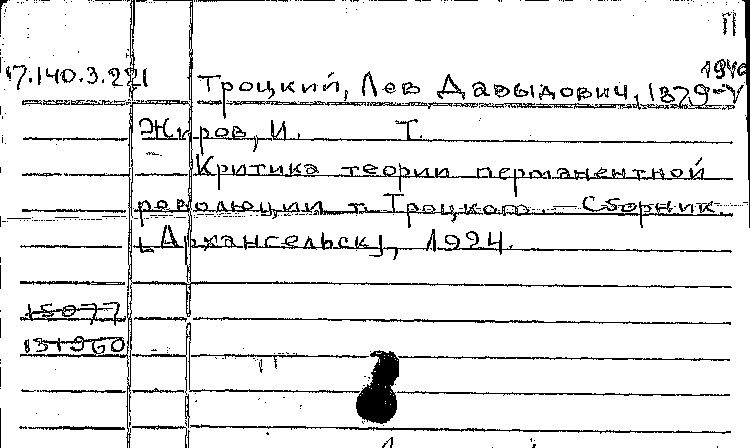 П
17.140.3.221 Троцкий, Лев Давыдович, 1879-
1940
Жиров, И. Т.
Критика теории перманентной
революции т. Троцкого. - Сборник.
[Архансельск], 1924.
15077
131960